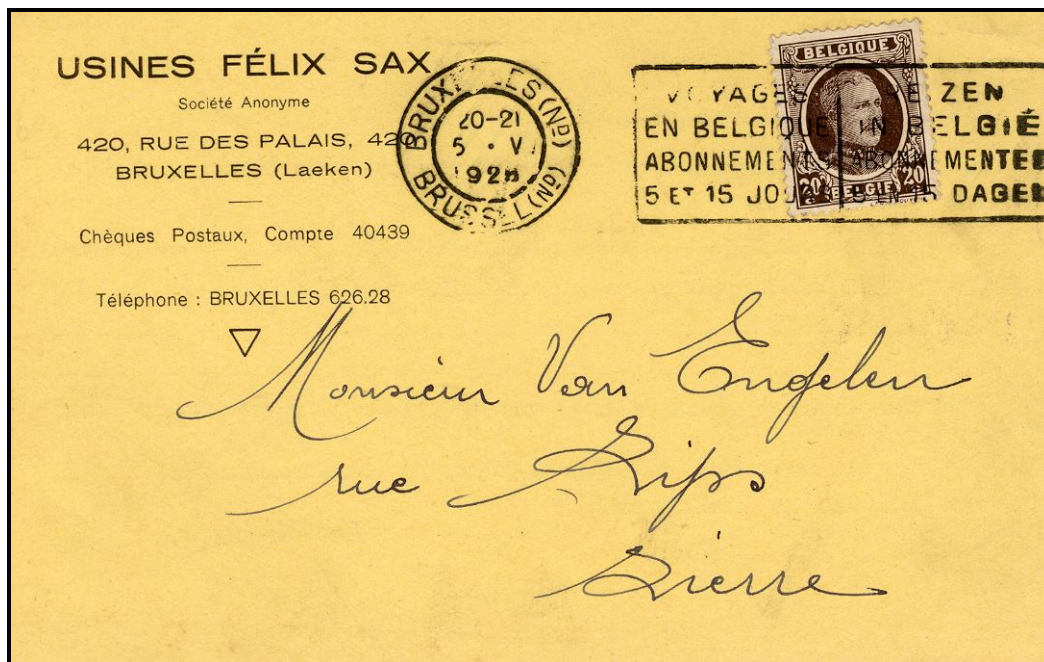 USINES FÉLIX SAX
Société Anonyme
420, RUE DES PALAIS, 420
BRUXELLES (Laeken)
Chèques Postaux, Compte 40439
Téléphone : BRUXELLES 626.28
BRUXELLES (ND)
20-21
5 · V
BRUSSEL (ND)
BELGIQUE
20 BELGIË 20
VOYAGES ZEN
EN BELGIQUE IN BELGIË
ABONNEMENTS ABONNEMENTEN
5 ET 15 JOURS 5 EN 15 DAGEN
Monsieur Van Engelen
rue Lips
Lierre